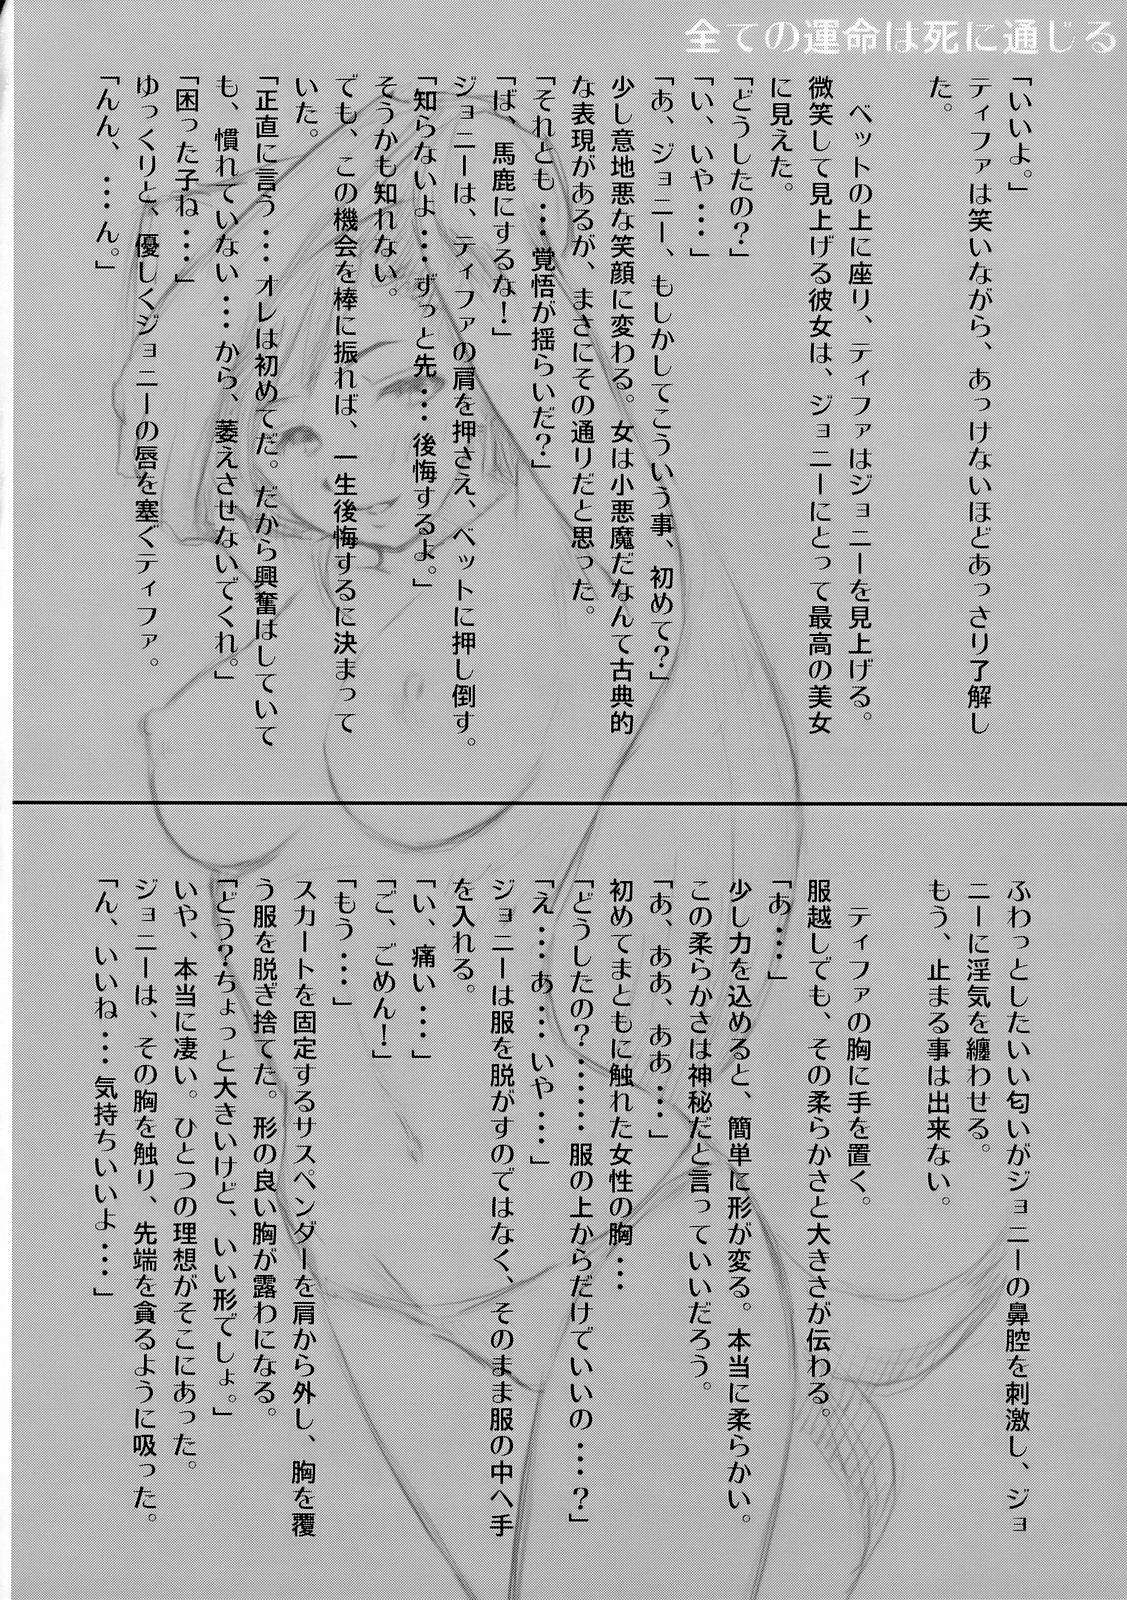 全ての運命は死に通じる
「いいよ。」
ティファは笑いながら、あっけないほどあっさり了解し
た。
ベットの上に座り、ティファはジョニーを見上げる。
微笑して見上げる彼女は、ジョニーにとって最高の美女
に見えた。
「どうしたの？」
「い、いや・・・」
「あ、ジョニー、もしかしてこういう事、初めて？」
少し意地悪な笑顔に変わる。女は小悪魔だなんて古典的
な表現があるが、まさにその通りだと思った。
「それとも・・・覚悟が揺らいだ？」
「ば、馬鹿にするな！」
ジョニーは、ティファの肩を押さえ、ベットに押し倒す。
「知らないよ・・・ずっと先・・・後悔するよ。」
そうかも知れない。
でも、この機会を棒に振れば、一生後悔するに決まって
いた。
「正直に言う・・・オレは初めてだ。だから興奮はしていて
も、慣れていない・・・から、萎えさせないでくれ。」
「困った子ね・・・」
ゆっくりと、優しくジョニーの唇を塞ぐティファ。
「んん、・・・ん。」
ふわっとしたいい匂いがジョニーの鼻腔を刺激し、ジョ
ニーに淫気を纏わせる。
もう、止まる事は出来ない。
ティファの胸に手を置く。
服越しでも、その柔らかさと大きさが伝わる。
「あ・・・」
少し力を込めると、簡単に形が変る。本当に柔らかい。
この柔らかさは神秘だと言っていいだろう。
「あ、ああ、ああ・・・」
初めてまともに触れた女性の胸・・・
「どうしたの？・・・・・・服の上からだけでいいの・・・？」
「え・・・あ・・・いや・・・・」
ジョニーは服を脱がすのではなく、そのまま服の中へ手
を入れる。
「い、痛い・・・」
「ご、ごめん！」
「もう・・・」
スカートを固定するサスペンダーを肩から外し、胸を覆
う服を脱ぎ捨てた。形の良い胸が露わになる。
「どう？ちょっと大きいけど、いい形でしょ。」
いや、本当に凄い。ひとつの理想がそこにあった。
ジョニーは、その胸を触り、先端を貪るように吸った。
「ん、いいね・・・気持ちいいよ・・・・」